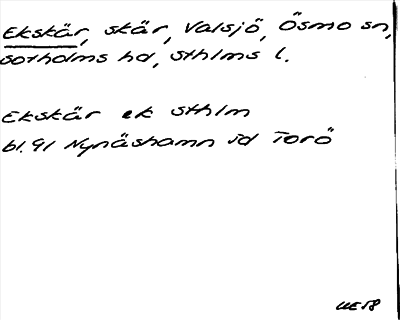 Ekskär, skär, Valsjö, Ösmo sn,
Sotholms hd, Sthlms l.
Ekskär ek Sthlm
bl. 91 Nynäshamn Sd Torö
UE 58